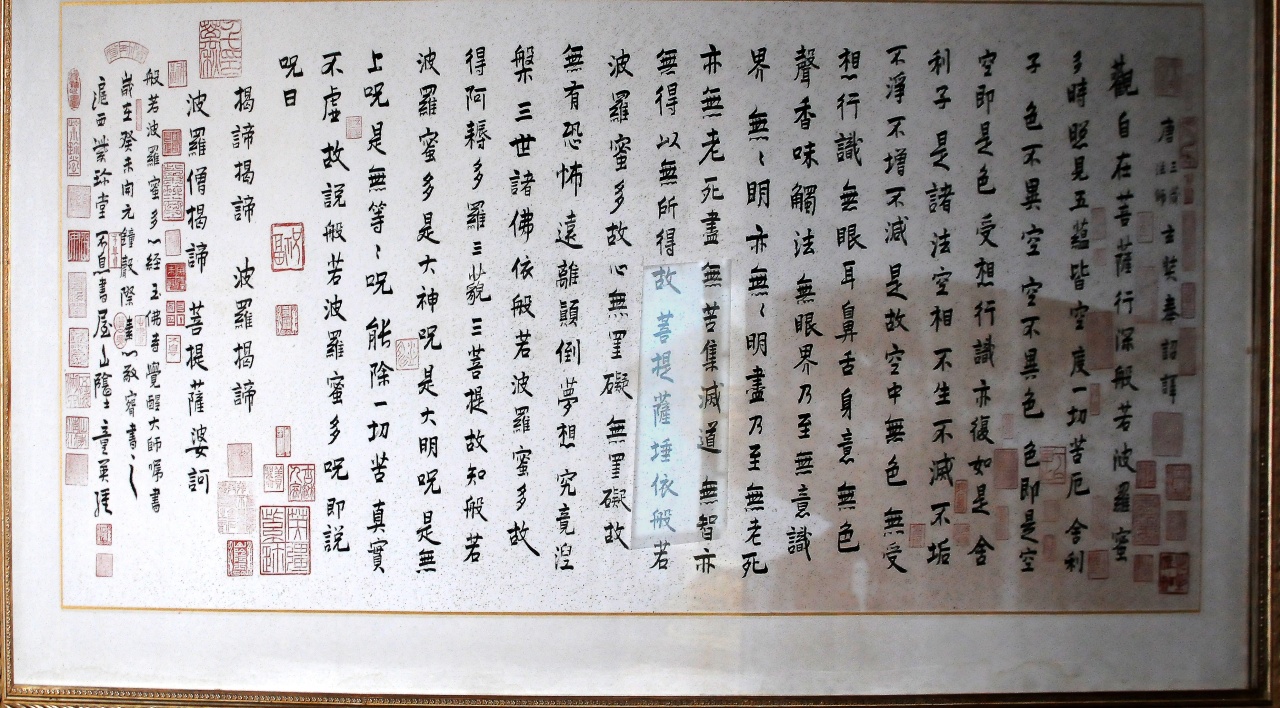 唐三藏法師玄奘奉詔譯
觀自在菩薩行深般若波羅蜜
多時照見五蘊皆空度一切苦厄舍利
子色不異空空不異色色即是空
空即是色受想行識亦復如是舍
利子是諸法空相不生不滅不垢
不淨不增不減是故空中無色無受
想行識無眼耳鼻舌身意無色
聲香味觸法無眼界乃至無意識
界無〻明亦無〻明盡乃至無老死
亦無老死盡無苦集滅道無智亦
無得以無所得故菩提薩埵依般若
波羅蜜多故心無罣礙無罣礙故
無有恐怖遠離顛倒夢想究竟涅
槃三世諸佛依般若波羅蜜多故
得阿耨多羅三藐三菩提故知般若
波羅蜜多是大神呪是大明呪是無
上呪是無等〻呪能除一切苦真實
不虛故說般若波羅蜜多呪即說
呪曰
揭諦揭諦 波羅揭諦
波羅僧揭諦 菩提薩婆訶
般若波羅蜜多心經玉佛寺覺醒大師囑書
歲在癸未向元鐘嚴際書
滬西 珍堂不息書屋山 童英